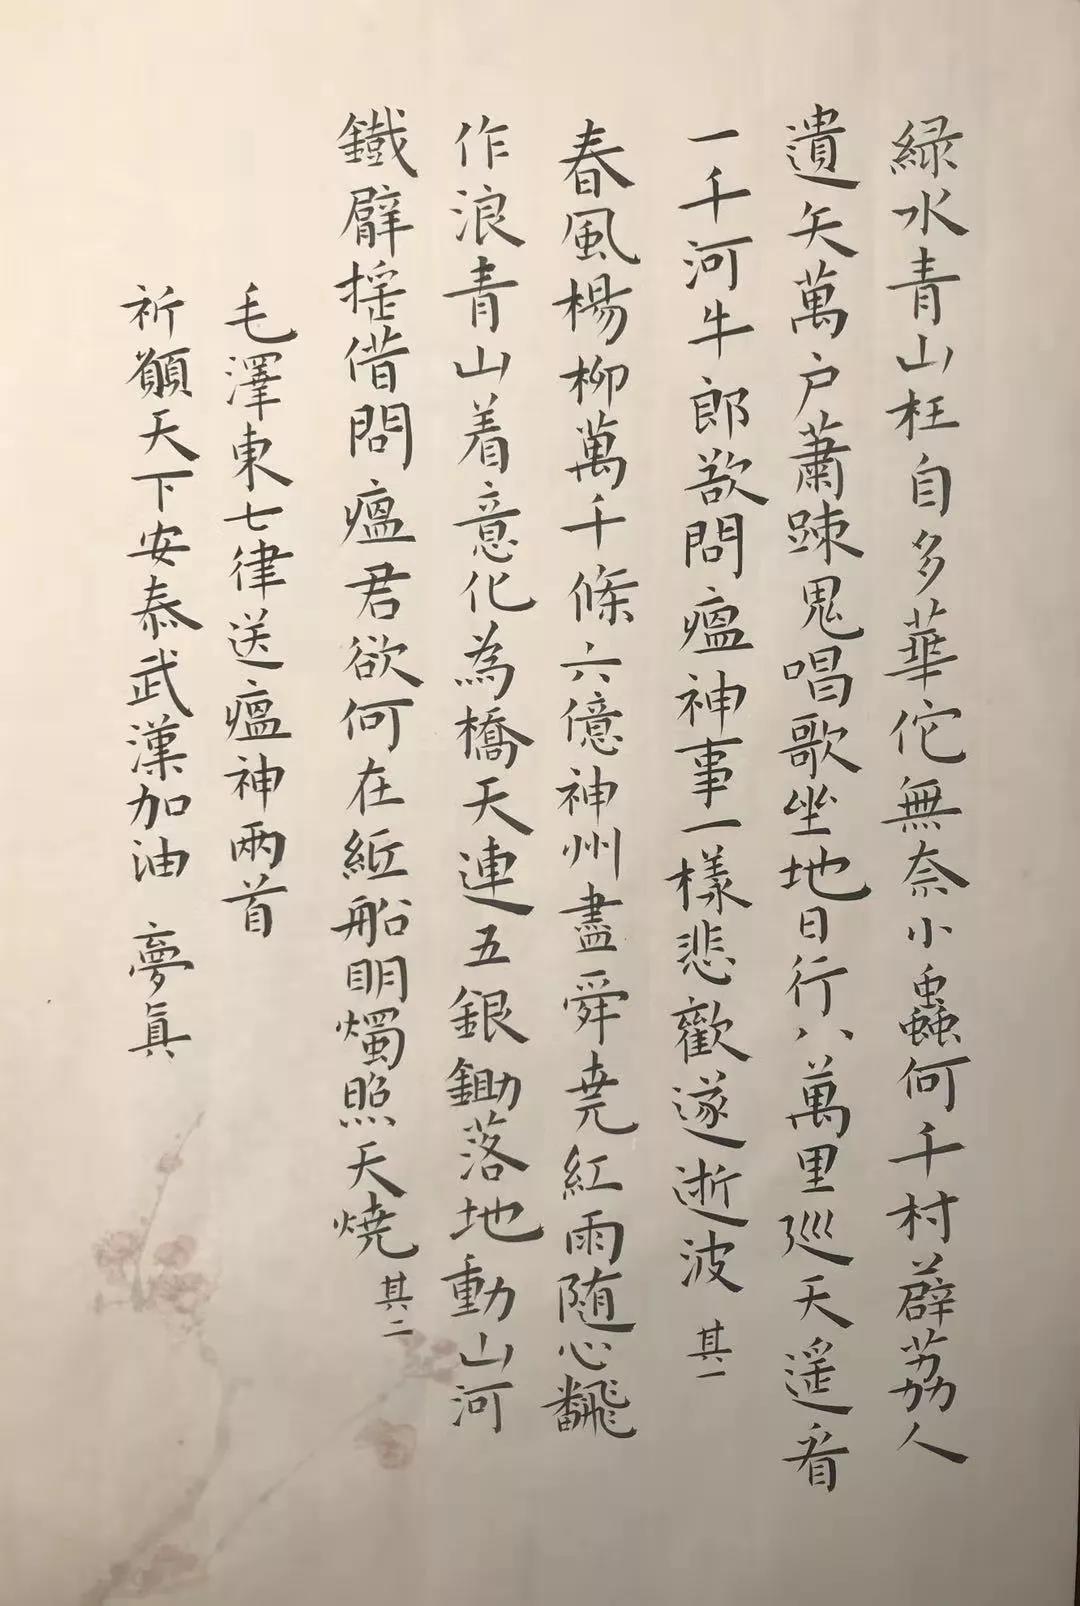 緑水青山枉自多華佗無奈小蟲何千村薜荔人
遺矢萬户蕭踈鬼唱歌坐地日行八萬里巡天遥看
一千河牛郎欲問瘟神事一樣悲歡逐逝波 其一
春風楊柳萬千條六億神州盡舜堯紅雨随心飜
作浪青山着意化為橋天連五銀鋤落地動山河
鐵臂摇借問瘟君欲何在紙船明燭照天燒 其二
毛澤東七律送瘟神兩首
祈願天下安泰武漢加油 夢真